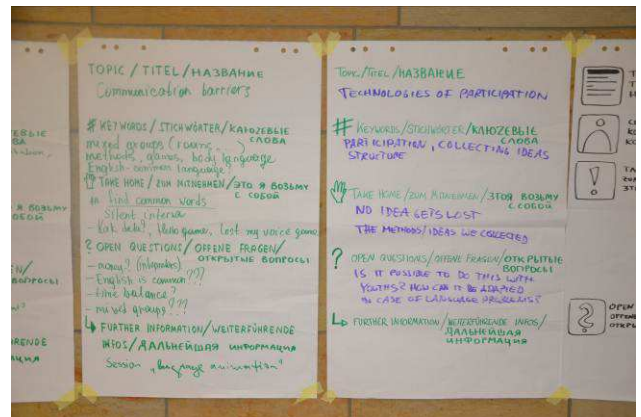 TOPIC / TITEL / НАЗВАНИЕ
Communication barriers
# KEYWORDS / STICHWÖRTER / КЛЮЗЕВЫЕ
СЛОВА
mixed groups (rooms, ...)
methods, games, body language
English-common language?
TAKE HOME / ZUM MITNEHMEN / ЭТО Я ВОЗЬМУ
С СОБОЙ
find common words
Silent
game, lost my voice game
? OPEN QUESTIONS / OFFENE FRAGEN /
ОТКРЫТЫЕ ВОПРОСЫ
- money? (interpreters)
- English is common???
- time balance?
- mixed groups???
FURTHER INFORMATION / WEITERFÜHRENDE
INFOS / ДАЛЬНЕЙШАЯ ИНФОРМАЦИЯ
Session „language animation"
TOPIC / TITEL / НАЗВАНИЕ
TECHNOLOGIES OF PARTICIPATION
# KEYWORDS / STICHWÖRTER / КЛЮЗЕВЫЕ
СЛОВА
PARTICIPATION, COLLECTING IDEAS
STRUCTURE
TAKE HOME / ZUM MITNEHMEN / ЭТО Я ВОЗЬМУ
С СОБОЙ
NO IDEA GETS LOST
THE METHODS/IDEAS WE COLLECTED
? OPEN QUESTIONS / OFFENE FRAGEN / ОТКРЫТЫЕ
ВОПРОСЫ
IS IT POSSIBLE TO DO THIS WITH
YOUTHS? HOW CAN IT BE ADAPTED
IN CASE OF LANGUAGE PROBLEMS?
FURTHER INFORMATION / WEITERFÜHRENDE INFOS /
ДАЛЬНЕЙШАЯ
ИНФОРМАЦИЯ
OPEN
OFFENE
ОТКРЫ